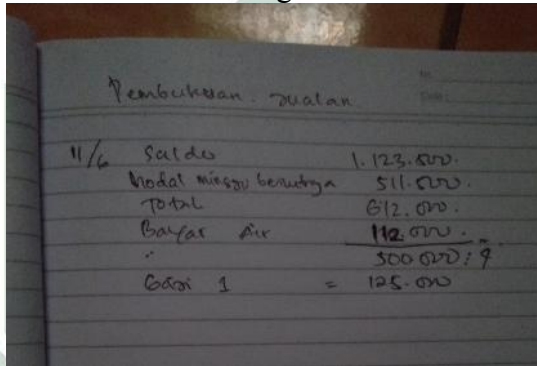 No.
Date:
Pembukuan Jualan
11/6 Saldo 1.123.500.
Modal minggu berikutnya 511.500.
Total 612.000.
Bayar Air 112.000.
500.000 : 4
Gaji 1 = 125.000